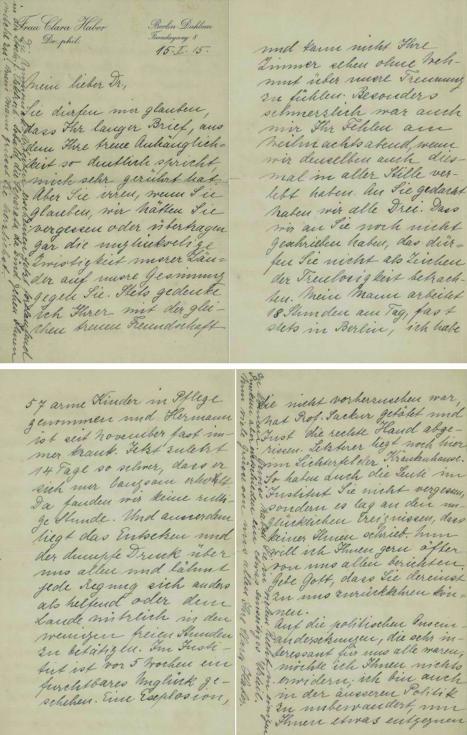 Frau Clara Haber
Dr. phil.
Berlin-Dahlem
Faradayweg 8
15. I. 15.
Mein lieber Dr,
Sie dürfen mir glauben,
dass Ihr langer Brief, aus
dem Ihre treue Anhänglich-
keit so deutlich spricht
mich sehr gerührt hat.
Aber Sie irren, wenn Sie
glauben, wir hätten Sie
vergessen oder übertragen
gar die unglückselige
Zwistigkeit unserer Län-
der auf unsre Gesinnung
gegen Sie. Stets gedenke
ich Ihrer mit der glei-
chen treuen Freundschaft
und kann nicht Ihre
Zimmer sehen ohne Weh-
mut über unsre Trennung
zu fühlen. Besonders
schmerzlich war auch
mir Ihr Fehlen am
Weihnachtsabend, wenn
wir denselben auch dies-
mal in aller Stille ver-
lebt haben. An Sie gedacht
haben wir alle Drei. Dass
wir an Sie noch nicht
geschrieben haben, das dür-
fen Sie nicht als Zeichen
der Treulosigkeit betrach-
ten. Mein Mann arbeitet
18 Stunden am Tag, fast
stets in Berlin, ich habe
57 arme Kinder in Pflege
genommen und Hermann
ist seit November fast im-
mer krank. Jetzt zuletzt
14 Tage so schwer, dass er
sich nur langsam erholt.
Da fanden wir keine ruhi-
ge Stunde. Und ausserdem
liegt das Entsetzen und
der dumpfe Druck über
uns allen und lähmt
jede Regung sich anders
als helfend oder dem
Lande nützlich in den
wenigen freien Stunden
zu betätigen. Im Insti-
tut ist vor 5 Wochen ein
furchtbares Unglück ge-
schehen. Eine Explosion,
die nicht vorherzusehen war,
hat Prof. Sackur getötet und
Just die rechte Hand abge-
rissen. Letzterer liegt noch hier
im Lichterfelder Krankenhause.
So haben auch die Leute im
Institut Sie nicht vergessen,
sondern es lag an den un-
glücklichen Ereignissen, dass
keiner Ihnen schrieb. Nun
will ich Ihnen gern öfter
von uns allen berichten.
Gebe Gott, dass Sie dereinst
zu uns zurückkehren kön-
nen.
Auf die politischen Ausein-
andersetzungen, die sehr in-
teressant für uns alle waren,
möchte ich Ihnen nichts
erwidern; ich bin auch
in der äusseren Politik
zu unbewandert, um
Ihnen etwas entgegnen